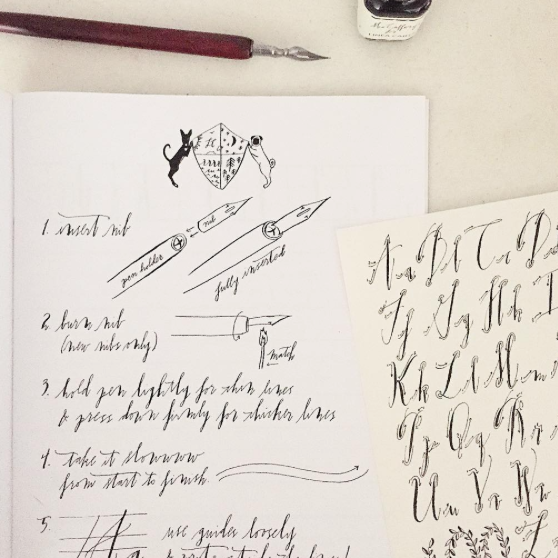 1. insert nib
nib
pen holder
fully inserted
2. burn nib
(new nibs only)
match
3. hold pen lightly for thin lines
& press down firmly for thicker lines
4. take it slowwww
from start to finish.
5.
use guides loosely
Aa Bb Cc D
Ff Gg Hh I
Kk Ll Mm
Pp Qq Rr
Uu Vv Ww